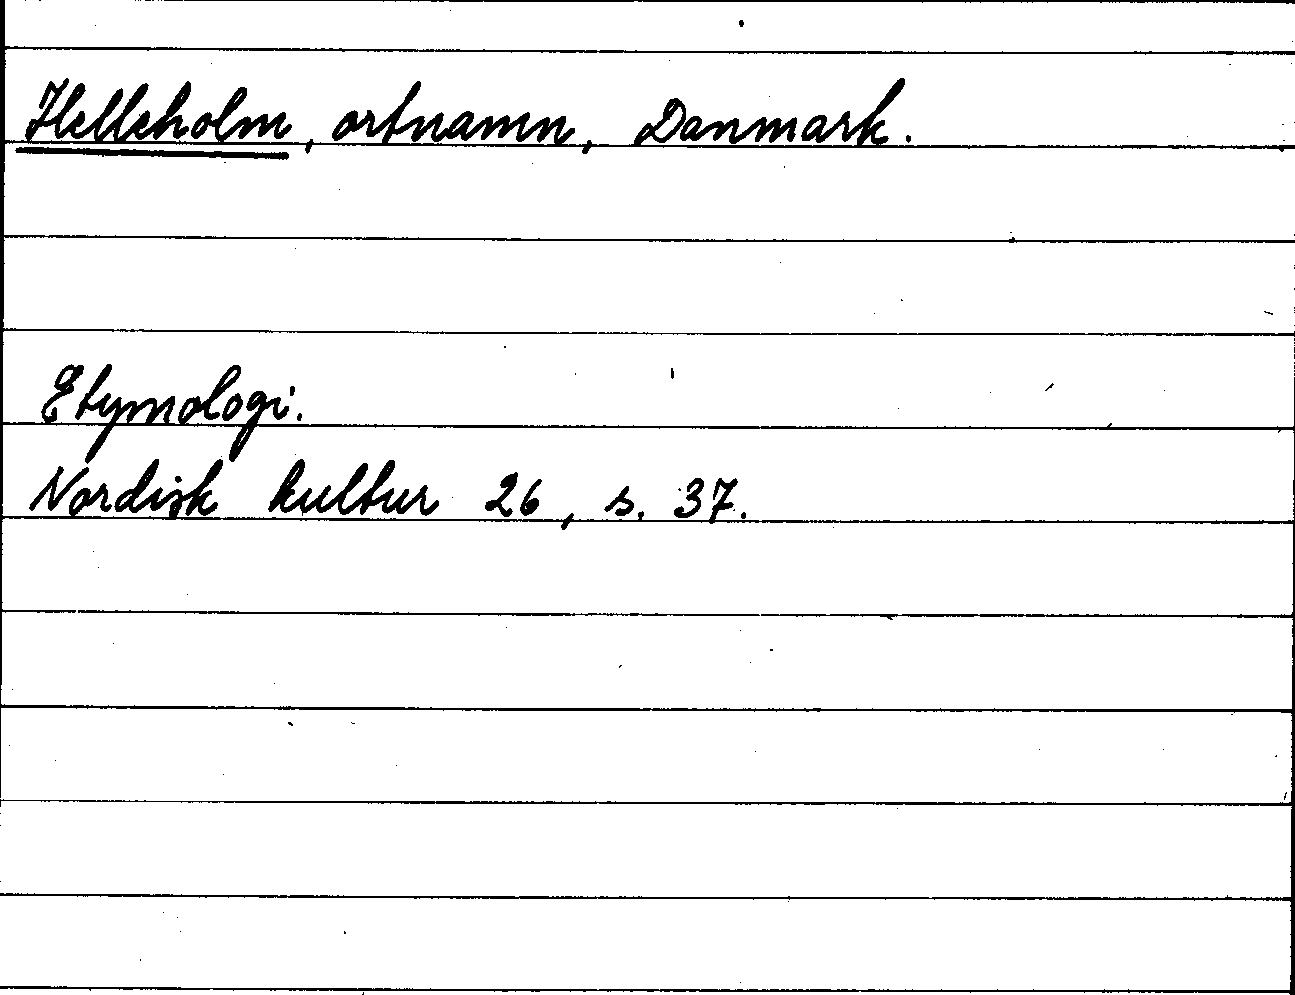 Helleholm, ortnamn, Danmark.
Etymologi.
Nordisk kultur 26, s. 37.